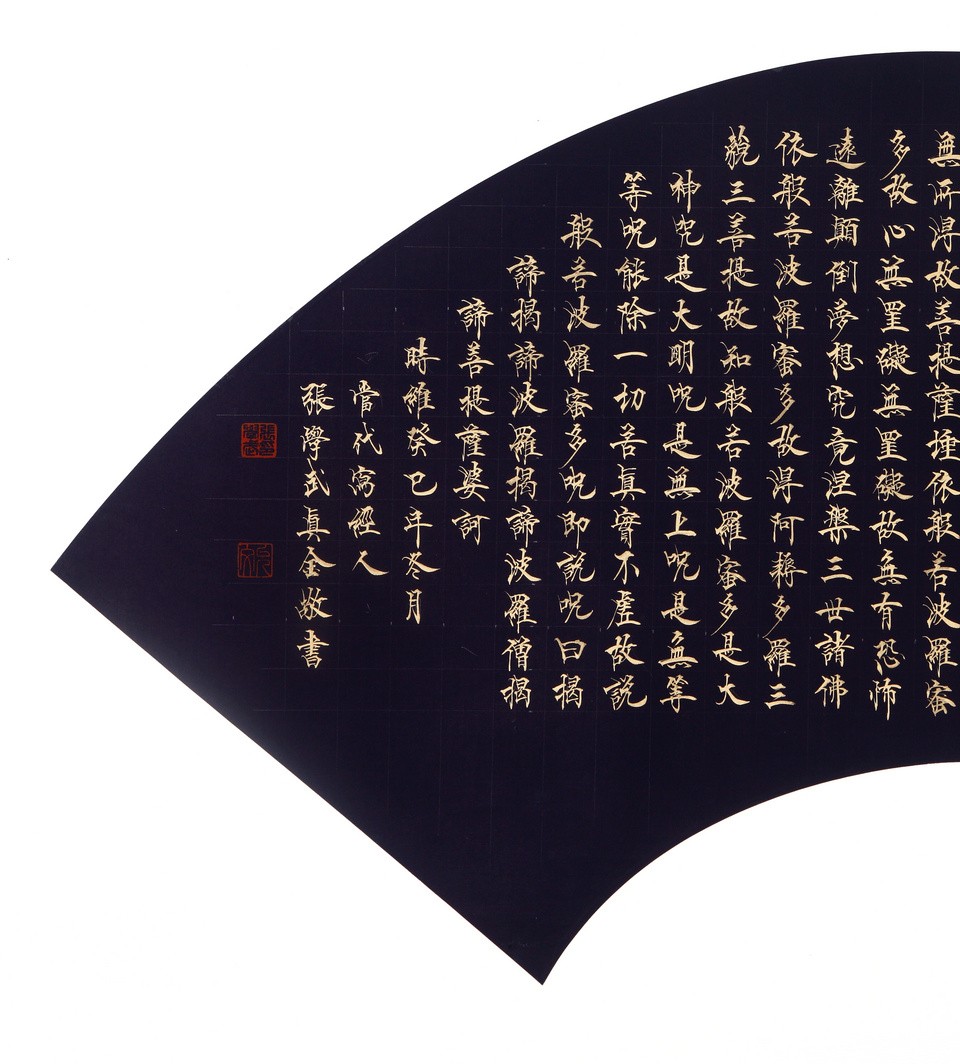 無所淂故菩提薩埵依般若波羅蜜
多故心無罣礙無罣礙故無有恐怖
遠離顛倒夢想究竟涅槃三世諸佛
依般若波羅蜜多故淂阿耨多羅三
藐三菩提故知般若波羅蜜多是大
神咒是大明呪是無上呪是無等
等呪能除一切苦真實不虛故説
般若波羅蜜多呪即説呪曰揭
諦揭諦波羅揭諦波羅僧揭
諦菩提薩婆訶
時維癸巳年冬月
當代寫經人
張學武真金敬書